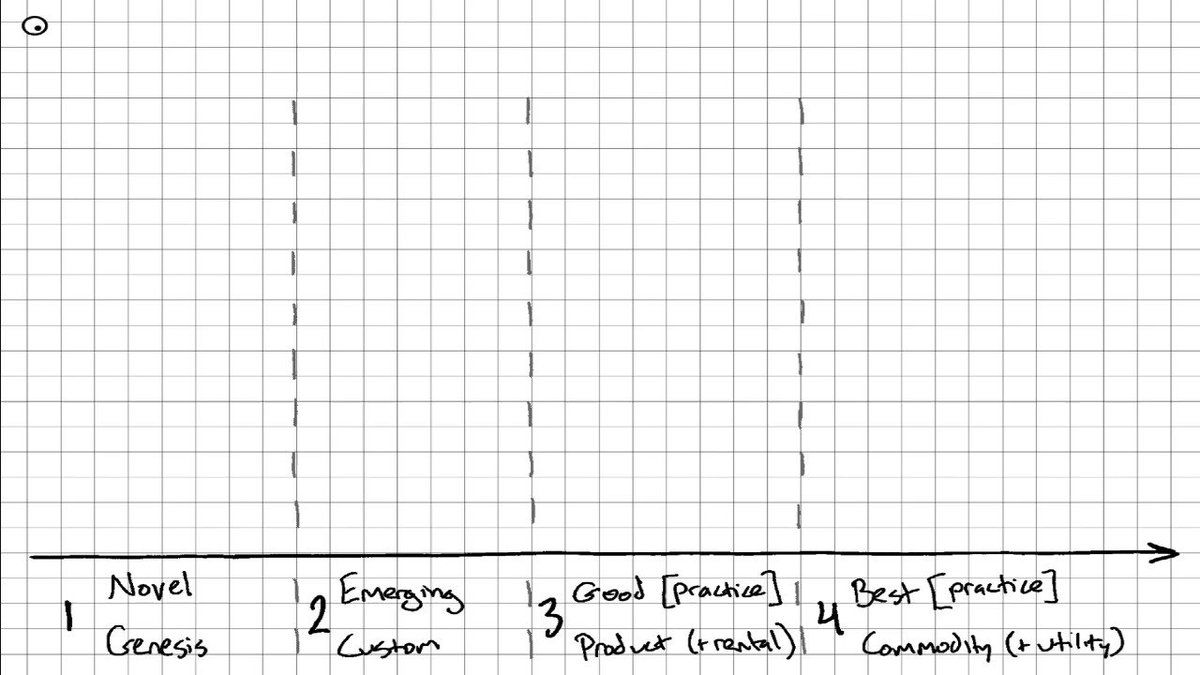 1 Novel
Genesis
2 Emerging
Custom
3 Good [practice]
Product (+rental)
4 Best [practice]
Commodity (+utility)